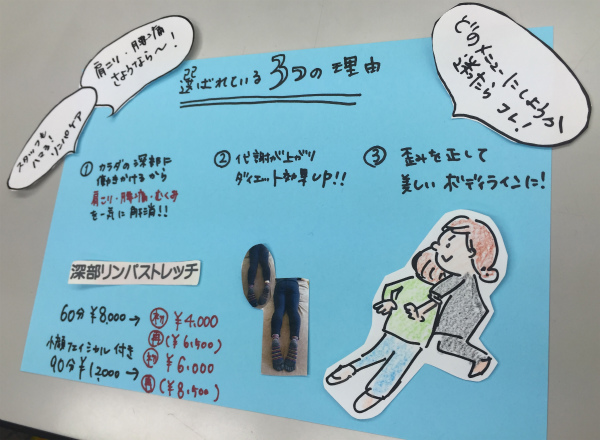 肩こり・腰痛
さようなら〜!
スタッフも
ハマる!
リンパケア
選ばれている3つの理由
どのメニューにしようか
迷たら
コレ!
① カラダの深部に
働きかけるから
肩こり・腰痛・むくみ
を一気に解消!!
② 代謝が上がり
ダイエット効果UP!!
③ 歪みを正して
美しいボディラインに!
深部リンパストレッチ
60分 ¥8,000→ 初 ¥4,000
再 (¥6,500)
小顔フェイシャル付き
90分 ¥12,000→ 初 ¥6,000
再 (¥8,500)